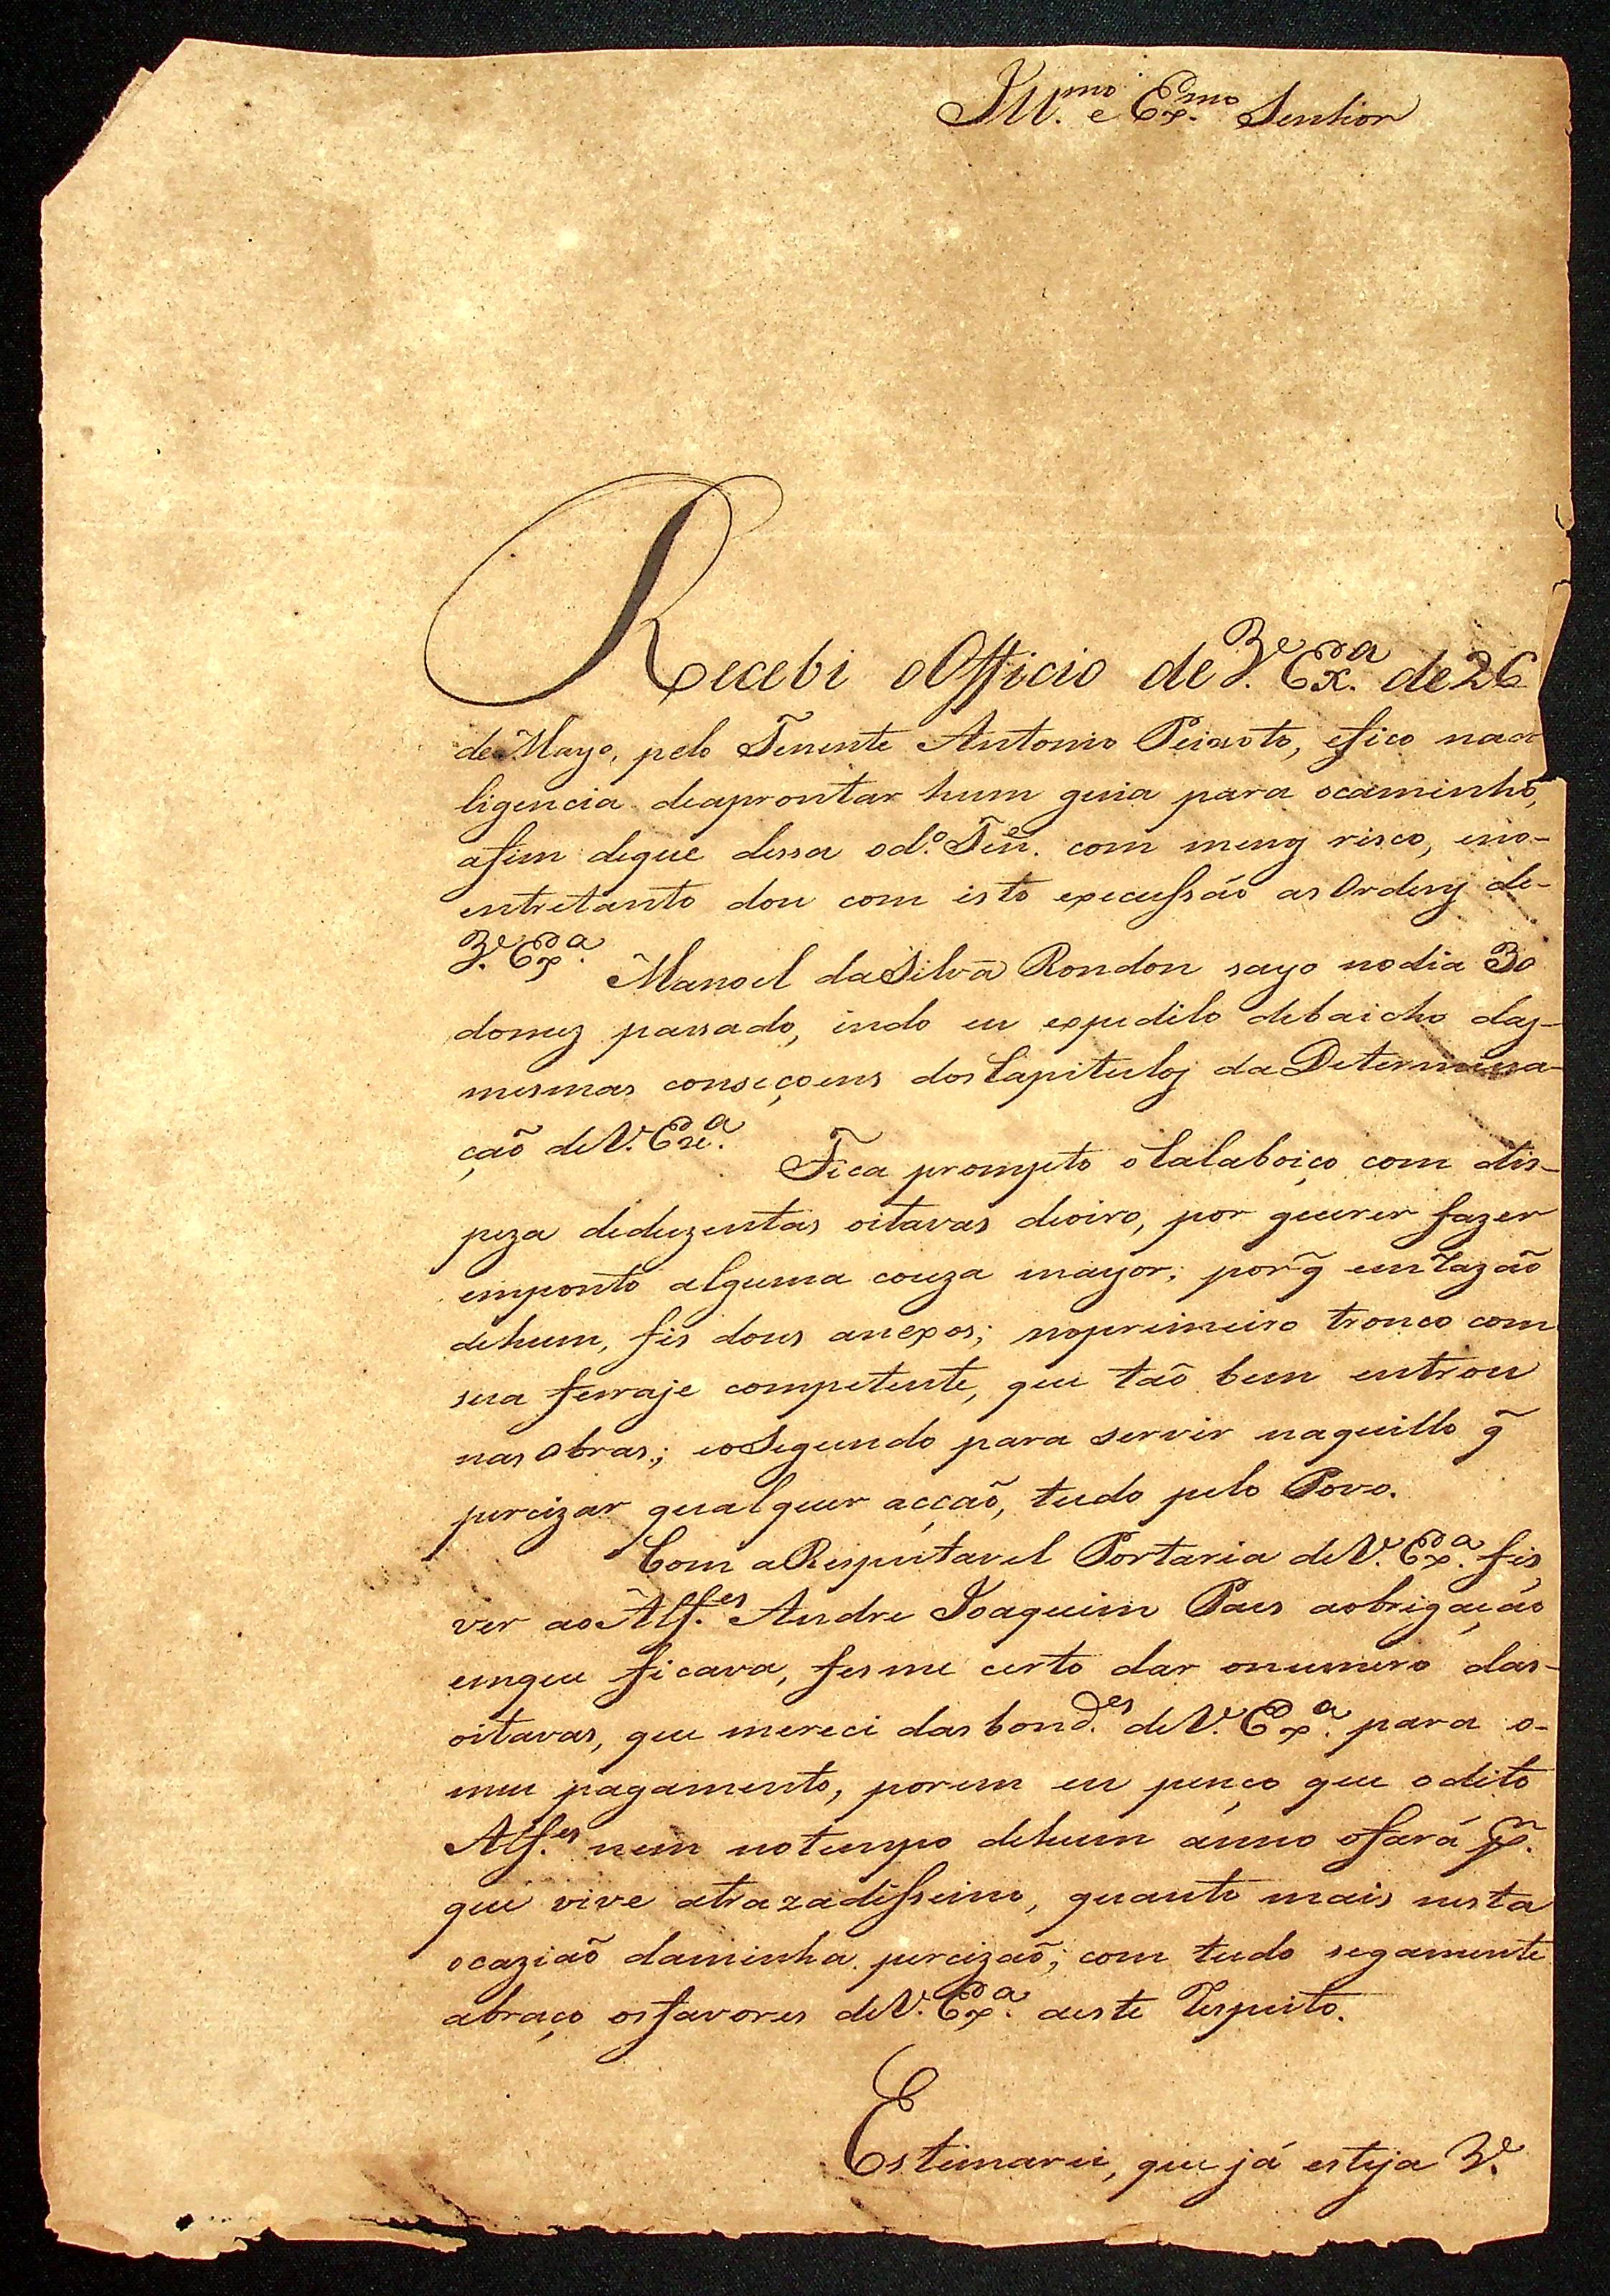 Ill.mo e Ex.mo Senhor
Recebi oOfficio de V. Ex.a de 26
de Mayo, pelo Tenente Antonio Peixoto, efico na
ligencia deaprontar hum guia para ocaminho,
afim deque dessa od.o Ten.e com menos risco, eno-
entretanto dou com isto execussão as Ordens de-
V. Ex.a Manoel daSilva Rondon sayo nodia 30
domez passado, indo eu expedilo debaicho das-
mesmas conseçoens dosCapitulos da Determina-
ção deV. Ex.a Fica prompto oCalaboiço com dis-
peza deduzentas oitavas deoiro, por querer fazer
emponto alguma couza mayor; porq̃ em razão
dehum, fis dous anexos; noprimeiro tronco com
sua ferraje competente, que tão bem entrou
nas obras; eoSegundo para servir naquillo q̃
percizar qualquer acção, tudo pelo Povo.
Com aRespeitavel Portaria deV. Ex.a fis
ver aoAlf.es Andre Joaquim Paes aobrigação
emque ficava, fesme certo dar onumero das-
oitavas, que mereci dasbond.es deV. Ex.a para o-
meu pagamento, porem eu penço que odito
Alf.es nem notempo dehum anno ofará
que vive atrazadissimo, quanto mais nesta
ocazião daminha percizão; com tudo segamente
abraço osfavores deV. Ex.a aeste respeito.
Estimarei, que já esteja V.